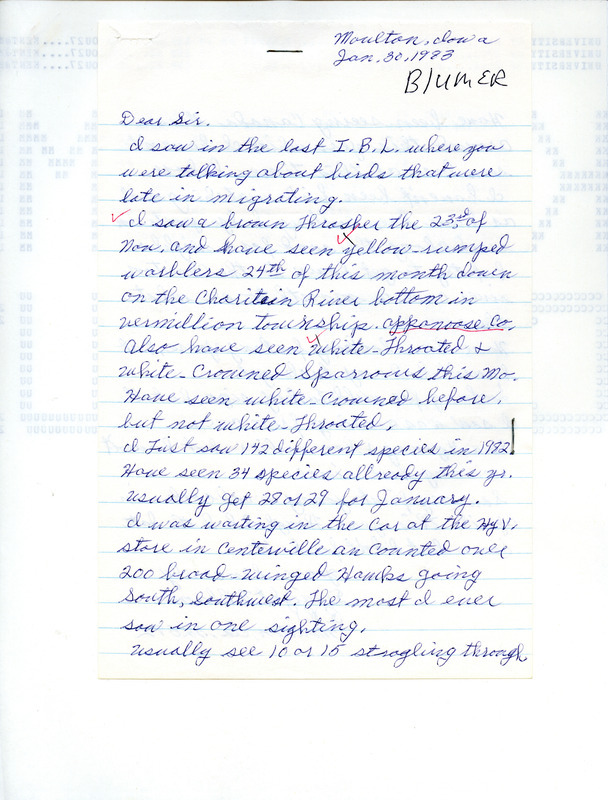 Moulton, Iowa
Jan. 30, 1983
BlUMER
Dear Sir.
I saw in the last I.B.L. where you
were talking about birds that were
late in migrating.
I saw a brown Thrasher the 23rd of
Nov. and have seen yellow-rumped
warblers 24th of this month down
on the Charitein River bottom in
vermillion township. appanoose Co.
Also have seen white-Throated &
white-Crowned Sparrows this Mo.
Have seen white-Crowned before,
but not white-Throated.
I Just saw 142 different species in 1982
Have seen 34 species allready this yr.
usually get 28 or 29 for January.
I was waiting in the car at the HyV.
store in Centerville an counted over
200 broad-winged Hawks going
South, southwest. The most I ever
saw in one sighting.
usually see 10 or 15 stragling through